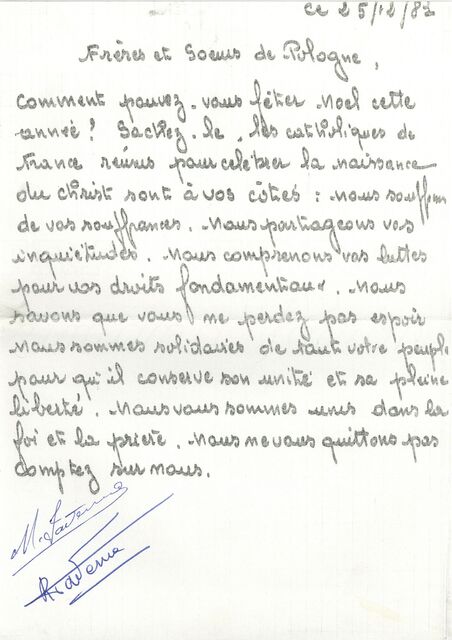 ce 25/12/81
Frères et Soeurs de Pologne,
Comment pouvez-vous fêter Noel cette
année! Sachez-le, les catholiques de
France réunis pour celébrer la naissance
du Christ sont à vos côtiés : nous souffrons
de vos souffrances. Nous partageons vos
inquiétudes. Nous comprenons vos luttes
pour vos droits fondamentaux. Nous
savons que vous ne perdez pas espoir
Nous sommes solidaires de tout votre peuple
pour qu'il conserve son unité et sa pleine
liberté. Nous vous sommes unis dans la
foi et la prière. Nous ne vous quittons pas
Comptez sur nous.